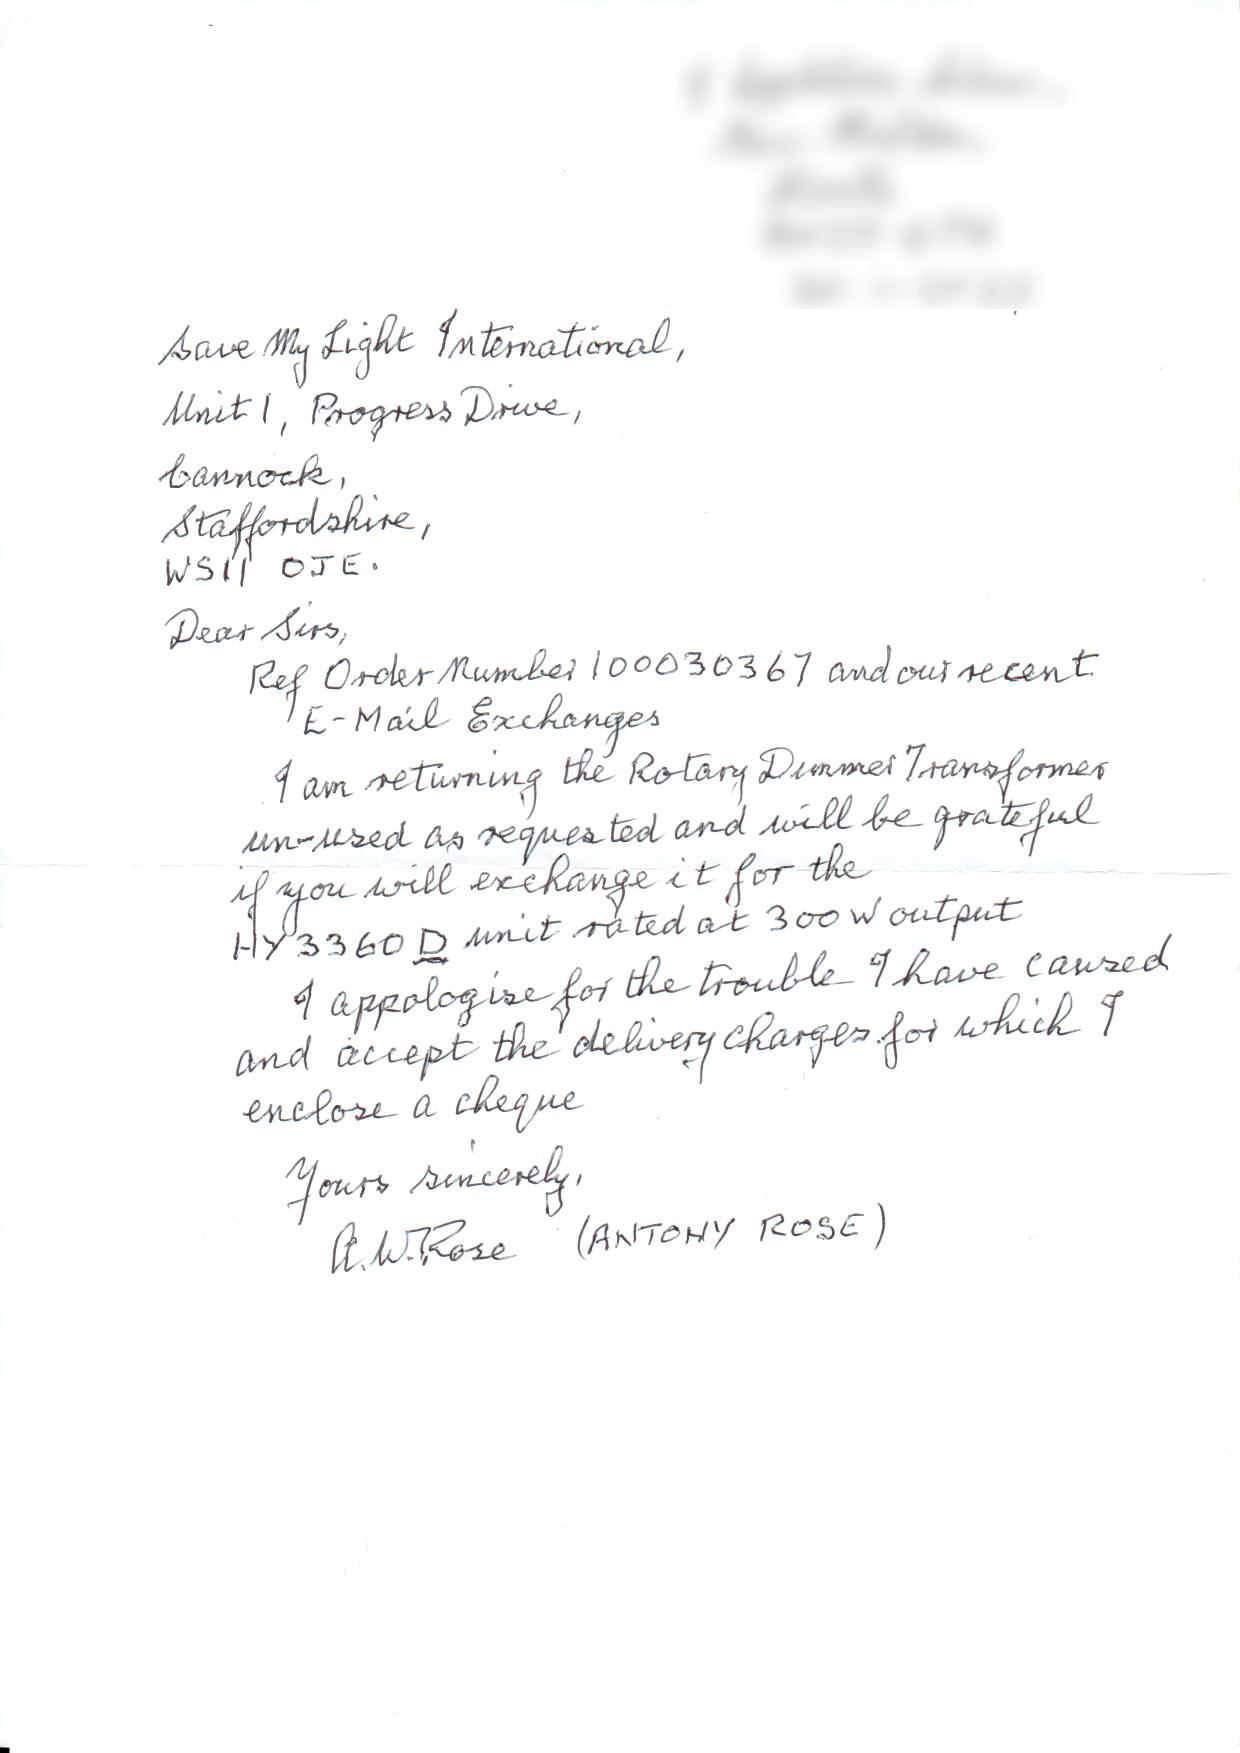 Save My Light International,
Unit 1, Progress Drive,
Cannock,
Staffordshire,
WS11 0JE.
Dear Sirs,
Ref Order Number 100030367 and our recent
E-Mail Exchanges
I am returning the Rotary Dimmer Transformer
un-used as requested and will be grateful
if you will exchange it for the
HY3360D unit rated at 300W output
I appologise for the trouble I have caused
and accept the delivery charges for which I
enclose a cheque
Yours sincerely,
A.W.Rose (ANTONY ROSE)